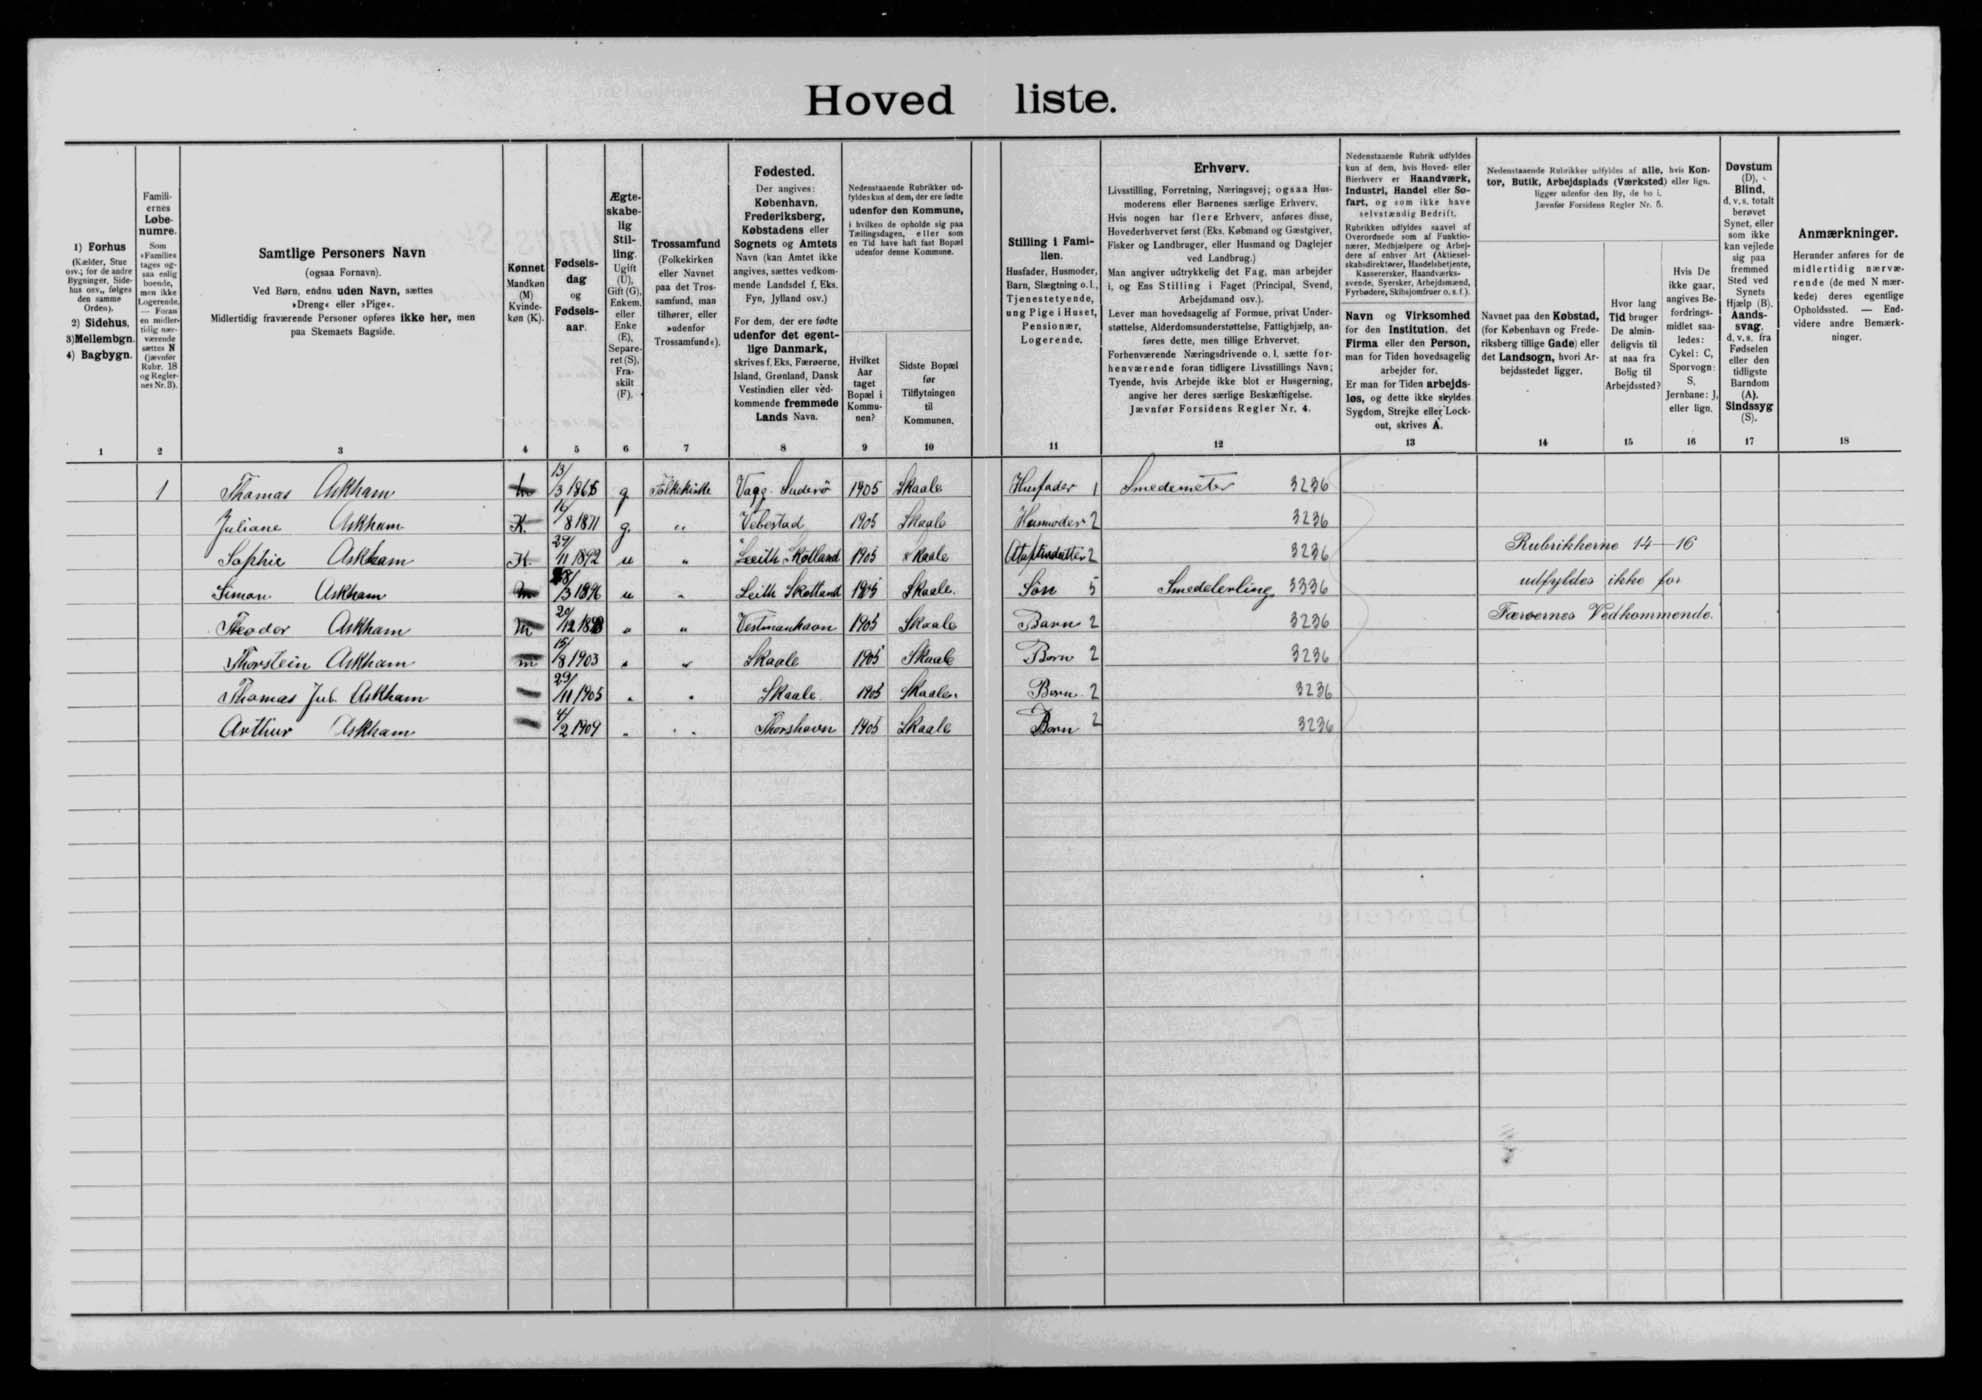 Hoved liste.
1) Forhus
(Kælder, Stue
osv.; for de andre
Bygninger, Side-
hus osv., følges
den samme
Orden).
2) Sidehus,
3) Mellembgn.
4) Bagbygn.
Famili-
ernes
Løbe-
numre.
Som
»Familie«
tages og-
saa enlig
boende,
men ikke
Logerende.
— Foran
en midler-
tidig nær-
værende
sættes N
(jævnfør
Rubr. 18
og Regler-
nes Nr. 3).
Samtlige Personers Navn
(ogsaa Fornavn).
Ved Børn, endnu uden Navn, sættes
»Dreng« eller »Pige«.
Midlertidig fraværende Personer opføres ikke her, men
paa Skemaets Bagside.
Kønnet
Mandkøn
(M)
Kvinde-
køn (K).
Fødsels-
dag
og
Fødsels-
aar.
Ægte-
skabe-
lig
Stil-
ling.
Ugift
(U),
Gift (G),
Enkem.
eller
Enke
(E),
Separe-
ret (S),
Fra-
skilt
(F).
Trossamfund
(Folkekirken
eller Navnet
paa det Tros-
samfund, man
tilhører, eller
»udenfor
Trossamfund«).
Fødested.
Der angives:
København,
Frederiksberg,
Købstadens eller
Sognets og Amtets
Navn (kan Amtet ikke
angives, sættes vedkom-
mende Landsdel f. Eks.
Fyn, Jylland osv.)
For dem, der ere fødte
udenfor det egent-
lige Danmark,
skrives f. Eks. Færøerne,
Island, Grønland, Dansk
Vestindien eller ved-
kommende fremmede
Lands Navn.
Nedenstaaende Rubrikker ud-
fyldes kun af dem, der ere fødte
udenfor den Kommune,
i hvilken de opholde sig paa
Tællingsdagen, eller som
en Tid have haft fast Bopæl
udenfor denne Kommune.
Hvilket
Aar
taget
Bopæl i
Kommu-
nen?
Sidste Bopæl
før
Tilflytningen
til
Kommunen.
Stilling i Fami-
lien.
Husfader, Husmoder,
Barn, Slægtning o.l.,
Tjenestetyende,
ung Pige i Huset,
Pensionær,
Logerende.
Erhverv.
Livsstilling, Forretning, Næringsvej; ogsaa Hus-
moderens eller Børnenes særlige Erhverv.
Hvis nogen har flere Erhverv, anføres disse,
Hovederhvervet først (Eks. Købmand og Gæstgiver,
Fisker og Landbruger, eller Husmand og Daglejer
ved Landbrug.)
Man angiver udtrykkelig det Fag, man arbejder
i, og Ens Stilling i Faget (Principal, Svend,
Arbejdsmand osv.).
Lever man hovedsagelig af Formue, privat Under-
støttelse, Alderdomsunderstøttelse, Fattighjælp, an-
føres dette, men tillige Erhvervet.
Forhenværende Næringsdrivende o. l. sætte for-
henværende foran tidligere Livsstillings Navn;
Tyende, hvis Arbejde ikke blot er Husgerning,
angive her deres særlige Beskæftigelse.
Jævnfør Forsidens Regler Nr. 4.
Nedenstaaende Rubrik udfyldes
kun af dem, hvis Hoved- eller
Bierhverv er Haandværk,
Industri, Handel eller Sø-
fart, og som ikke have
selvstændig Bedrift.
Rubrikken udfyldes saavel af
Overordnede som af Funktio-
nærer, Medhjælpere og Arbej-
dere af enhver Art (Aktiesel-
skabsdirektører, Handelsbetjente,
Kasserersker, Haandværks-
svende, Syersker, Arbejdsmænd,
Fyrbødere, Skibsjomfruer o. s. f.).
Navn og Virksomhed
for den Institution, det
Firma eller den Person,
man for Tiden hovedsagelig
arbejder for.
Er man for Tiden arbejds-
løs, og dette ikke skyldes
Sygdom, Strejke eller Lock-
out, skrives A.
Nedenstaaende Rubrikker udfyldes af alle, hvis Kon-
tor, Butik, Arbejdsplads (Værksted) eller lign.
ligger udenfor den By, de bo i.
Jævnfør Forsidens Regler Nr. 5.
Navnet paa den Købstad,
(for København og Frede-
riksberg tillige Gade) eller
det Landsogn, hvori Ar-
bejdsstedet ligger.
Hvor lang
Tid bruger
De almin-
deligvis til
at naa fra
Bolig til
Arbejdssted?
Hvis De
ikke gaar,
angives Be-
fordrings-
midlet saa-
ledes:
Cykel: C,
Sporvogn:
S,
Jernbane: J,
eller lign.
Døvstum
(D),
Blind,
d. v. s. totalt
berøvet
Synet, eller
som ikke
kan vejlede
sig paa
fremmed
Sted ved
Synets
Hjælp (B).
Aands-
svag,
d. v. s. fra
Fødselen
eller den
tidligste
Barndom
(A).
Sindssyg
(S).
Anmærkninger.
Herunder anføres for de
midlertidig nærvæ-
rende (de med N mær-
kede) deres egentlige
Opholdssted. — End-
videre andre Bemærk-
ninger.
1 2 3 4 5 6 7 8 9 10 11 12 13 14 15 16 17 18
1 Thomas Askham 13/3 1865 g Folkekirke Vaag Suderö 1905 Skaale Husfader 1 Smedemester 3236
Juliane Askham K. 16/8 1871 g " Vebestad 1905 Skaale Husmoder 2 3236
Sophie Askham K. 29/11 1892 u " Leith Skotland 1905 Skaale 2 3236 Rubrikkerne 14-16
Simon Askham 1896 u " Leith Skotland 1905 Skaale. Søn 5 Smedelerling 3336 udfyldes ikke for
Theodor Askham M 20/12 " " Vestmanhavn 1905 Skaale Barn 2 3236 Færøernes Vedkommende.
Thorstein Askham m 15/8 1903 " " Skaale 1905 Skaale Barn 2 3236
Thomas Jul. Askham 29/11 1905 " " Skaale 1905 Skaale. Barn 2 3236
Arthur Askham 4/2 1909 " " Thorshavn 1905 Skaale Barn 2 3236